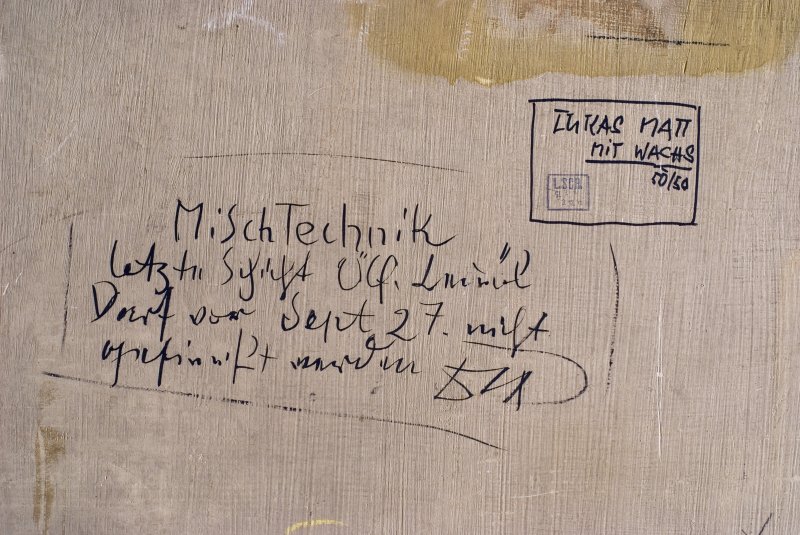 LUKAS MATT
MIT WACHS
50/50
MischTechnik
letzte Schicht Ölf. Leinöl
Darf vor Sept 27. nicht
gefirnißt werden